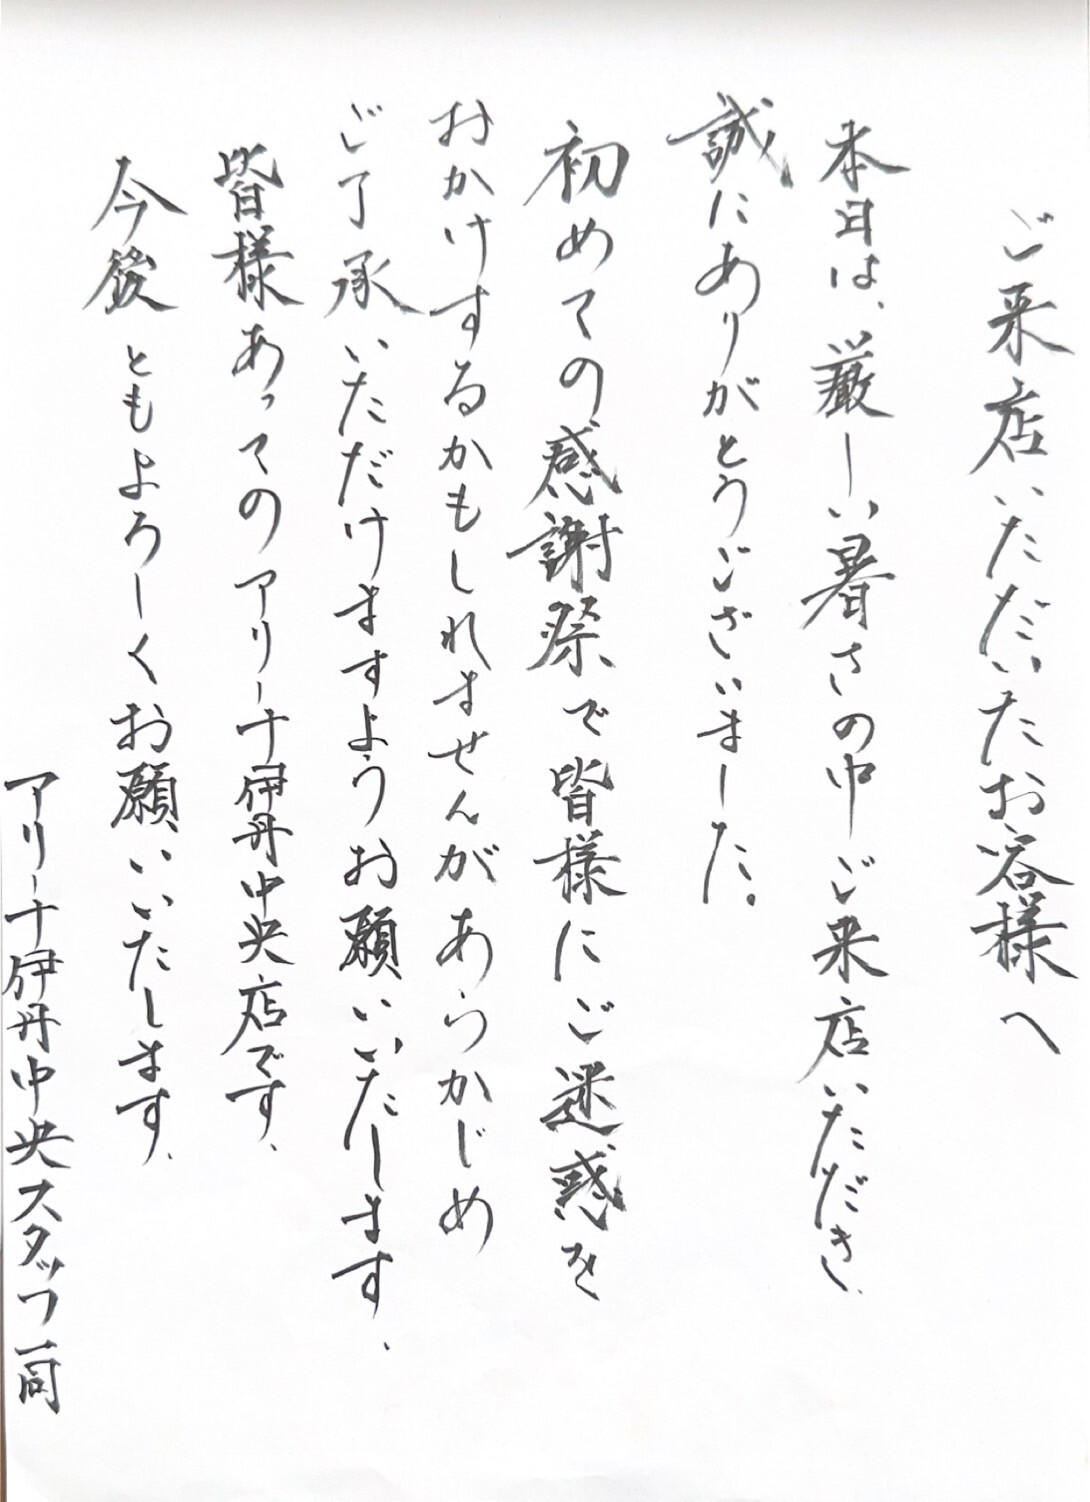 ご来店いただいたお客様へ
本日は、厳しい暑さの中ご来店いただき、
誠にありがとうございました。
初めての感謝祭で皆様にご迷惑を
おかけするかもしれませんがあらかじめ
ご了承いただけますようお願いいたします、
皆様あってのアリーナ伊丹中央店です、
今後ともよろしくお願いいたします、
アリーナ伊丹中央スタッフ一同